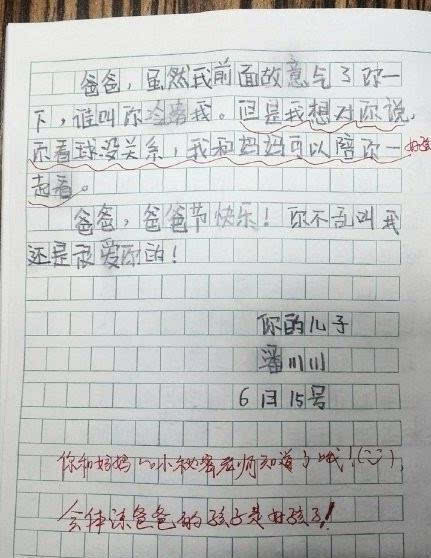 爸爸，虽然我前面故意气了你一
下，谁叫你冷落我。但是我想对你说，
你看球没关系，我和妈妈可以陪你一
好孩
起看。
爸爸，爸爸节快乐！你不乱叫我
还是很爱你的！
你的儿子
潘川川
6月15号
你和妈妈的小秘密老师知道了哦！
会体谅爸爸的孩子是好孩子！